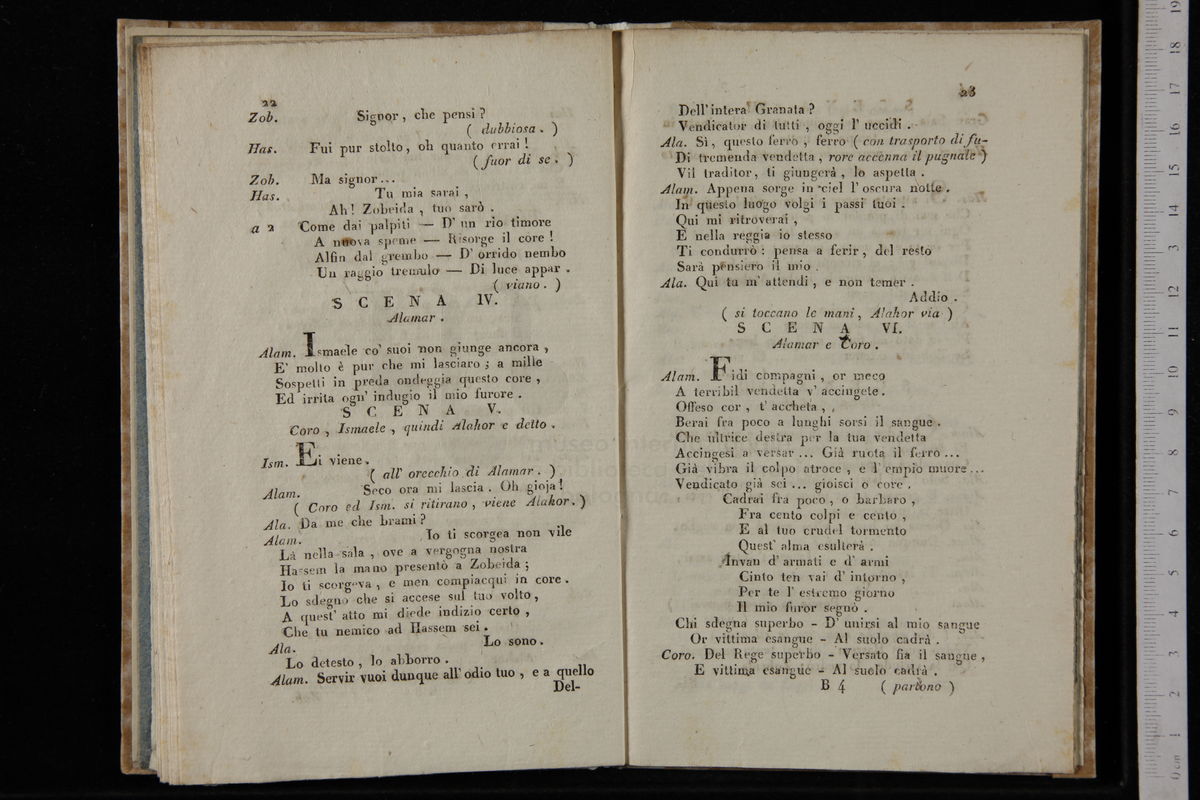 22
Zob. Signor, che pensi?
( dubbiosa. )
Has. Fui pur stolto, oh quanto errai!
( fuor di se. )
Zob. Ma signor...
Has. Tu mia sarai,
Ah! Zobeida, tuo sarò.
a 2 Come dai palpiti — D' un rio timore
A nuova speme — Risorge il core!
Alfin dal grembo — D' orrido nembo
Un raggio tremulo — Di luce appar.
( viano. )
SCENA IV.
Alamar.
Alam. Ismaele co' suoi non giunge ancora,
E' molto è pur che mi lasciaro; a mille
Sospetti in preda ondeggia questo core,
Ed irrita ogn' indugio il mio furore.
SCENA V.
Coro, Ismaele, quindi Alahor e detto.
Ism. Ei viene.
( all' orecchio di Alamar. )
Alam. Seco ora mi lascia. Oh gioja!
( Coro ed Ism. si ritirano, viene Alahor. )
Ala. Da me che brami?
Alam. Io ti scorgea non vile
Là nella sala, ove a vergogna nostra
Hassem la mano presentò a Zobeida;
Io ti scorgeva, e men compiacqui in core.
Lo sdegno che si accese sul tuo volto,
A quest' atto mi diede indizio certo,
Che tu nemico ad Hassem sei.
Ala. Lo sono.
Lo detesto, lo abborro.
Alam. Servir vuoi dunque all' odio tuo, e a quello
Del-
23
Dell' intera Granata?
Vendicator di tutti, oggi l' uccidi.
Ala. Sì, questo ferro, ferro ( con trasporto di fu-
Di tremenda vendetta, rore accenna il pugnale )
Vil traditor, ti giungerà, lo aspetta.
Alam. Appena sorge in ciel l' oscura notte.
In questo luogo volgi i passi tuoi.
Qui mi ritroverai,
E nella reggia io stesso
Ti condurrò: pensa a ferir, del resto
Sarà pensiero il mio.
Ala. Qui tu m' attendi, e non temer.
Addio.
( si toccano le mani, Alahor via )
SCENA VI.
Alamar e Coro.
Alam. Fidi compagni, or meco
A terribil vendetta v' accingete.
Offeso cor, t' accheta,
Berai fra poco a lunghi sorsi il sangue.
Che ultrice destra per la tua vendetta
Accingesi a versar... Già ruota il ferro...
Già vibra il colpo atroce, e l' empio muore...
Vendicato già sei... gioisci o core.
Cadrai fra poco, o barbaro,
Fra cento colpi e cento,
E al tuo crudel tormento
Quest' alma esulterà.
Invan d' armati e d' armi
Cinto ten vai d' intorno,
Per te l' estremo giorno
Il mio furor segnò.
Chi sdegna superbo - D' unirsi al mio sangue
Or vittima esangue - Al suolo cadrà.
Coro. Del Rege superbo - Versato fia il sangue,
E vittima esangue - Al suolo cadrà.
B 4 ( partono )